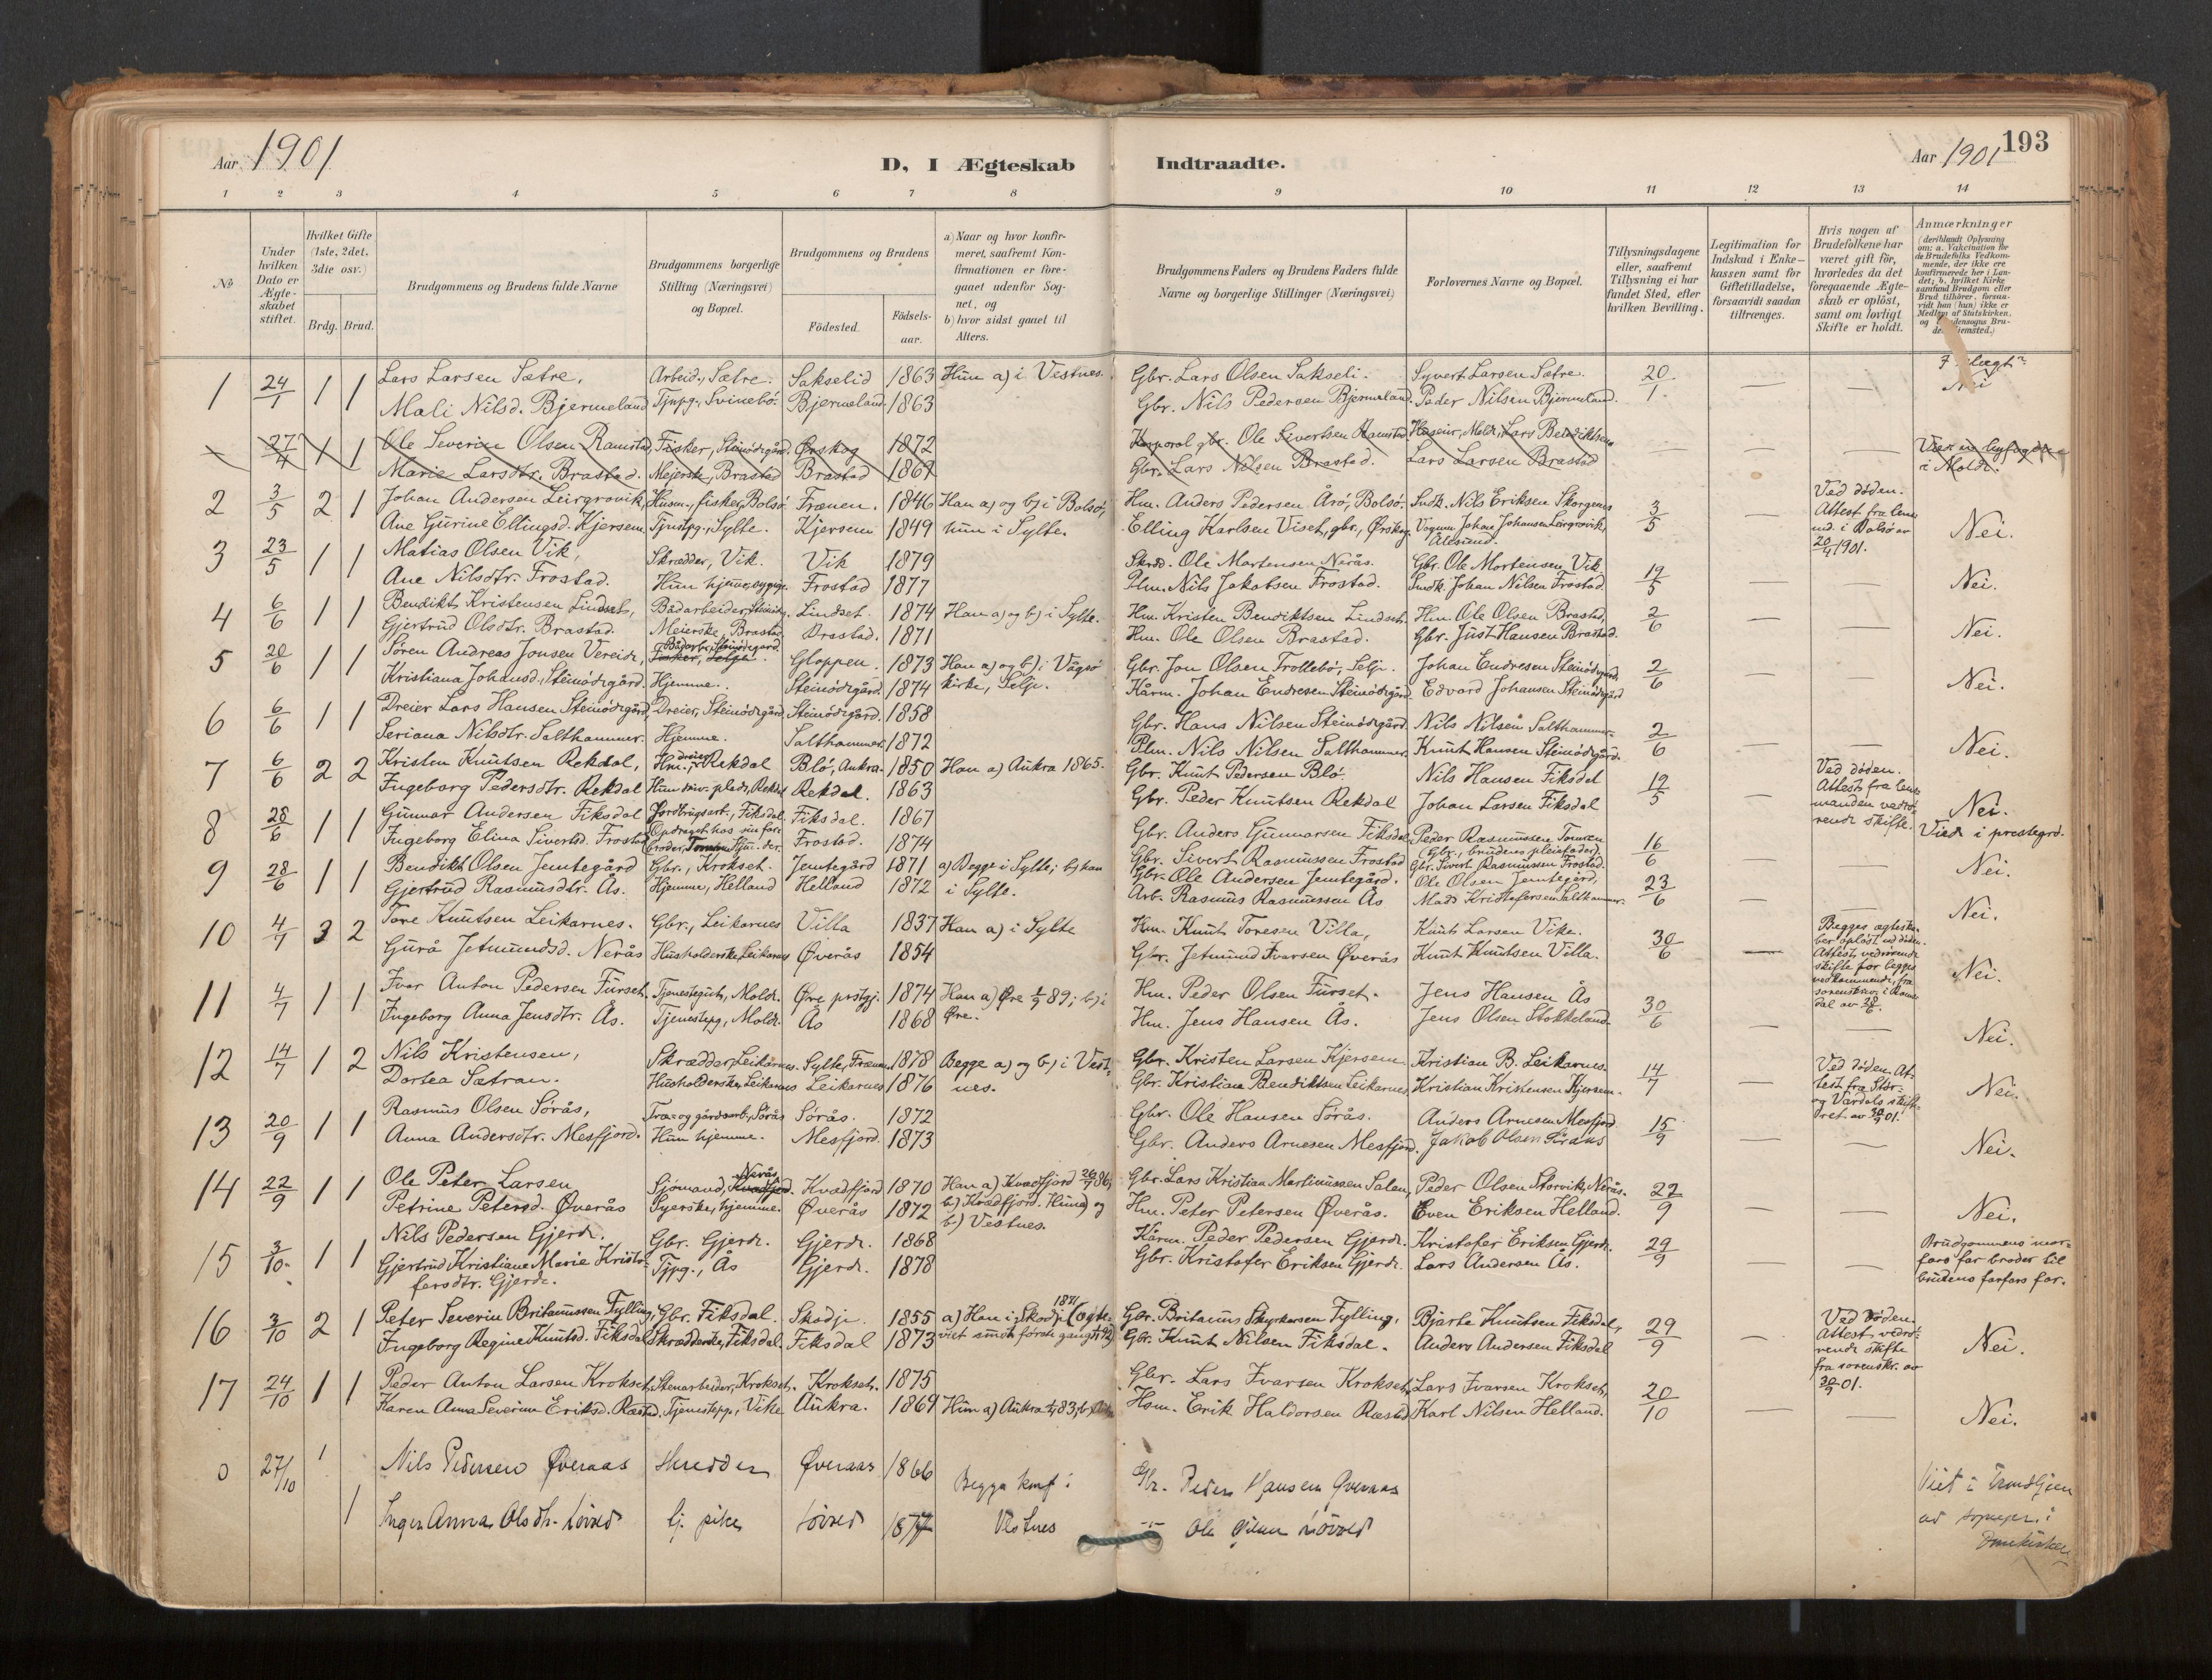 193
Aar 1901
D, I Ægteskab Indtraadte.
Aar 1901
1 2 3 4 5 6 7 8 9 10 11 12 13 14
No
Under hvilken Dato er Ægteskabet stiftet.
Hvilket Gifte (1ste, 2det, 3die osv.)
Brdg. Brud.
Brudgommens og Brudens fulde Navne
Brudgommens borgerlige Stilling (Næringsvei) og Bopæl.
Brudgommens og Brudens
Födested.
Födselsaar.
a) Naar og hvor konfirmeret, saafremt Konfirmationen er foregaaet udenfor Sognet, og
b) hvor sidst gaaet til Alters.
Brudgommens Faders og Brudens Faders fulde Navne og borgerlige Stillinger (Næringsvei)
Forlovernes Navne og Bopæl.
Tillysningsdagene eller, saafremt Tillysning ei har fundet Sted, efter hvilken Bevilling.
Legitimation for Indskud i Enkekassen samt for Giftetilladelse, forsaavidt saadan tiltrænges.
Hvis nogen af Brudefolkene har været gift för, hvorledes da det foregaaende Ægteskab er oplöst, samt om lovligt Skifte er holdt.
Anmærkninger
1 24/1 1 1 Lars Larsen Sætre, Arbeid., Sætre. Sakselid 1863 Hun a) i Vestnes. Gbr. Lars Olsen Sakseli. Syvert Larsen Sætre. 20/1 — — Nei
Mali Nilsd. Bjermeland Tjnpg., Svinebö. Bjermeland. 1863 Gbr. Nils Pedersen Bjermeland. Peder Nilsen Bjermeland.
27/4 1 1 Ole Severin Olsen Ramstad, Fisker, Steinödegård Ørskog 1872 Korporal, gbr. Ole Sivertsen Ramstad Lars Bendiktsen — — —
Marie Larsdtr. Brastad. Mejerske, Brastad Brastad 1867 Gbr. Lars Nilsen Brastad. Lars Larsen Brastad i Molde.
2 3/5 2 1 Johan Andersen Leirgrovik, Husm., fisker, Bolsö Frænen. 1846 Han a) og b) i Bolsö, Hm. Anders Pedersen Årö, Bolsö. Sndk. Nils Eriksen Skorgenes 3/5 — Ved döden. Attest fra lensmd. i Bolsö av 20/4 1901. Nei.
Ane Gurine Ellingsd. Kjersem Tjnstpg., Sylte. Kjersem 1849 hun i Sylte. Elling Karlsen Viset, gbr., Ørskog Vognm. Johan Johansen Leirgrovik, Ålesund.
3 23/5 1 1 Matias Olsen Vik, Skrædder, Vik. Vik 1879 Skræd. Ole Mortensen Nerås. Gbr. Ole Mortensen Vik. 19/5 — — Nei.
Ane Nilsdtr. Frostad. Hun hjemme, sygepl. Frostad 1877 Plm. Nils Jakobsen Frostad. Sndk. Johan Nilsen Frostad.
4 6/6 1 1 Bendikt Kristensen Lindset, Bådarbeider, Steinödeg. Lindset. 1874 Han a) og b) i Sylte. Hm. Kristen Bendiktsen Lindset. Hm. Ole Olsen Brastad, 2/6 — — Nei.
Gjertrud Olsdtr. Brastad. Meierske, Brastad Brastad. 1871 Hm. Ole Olsen Brastad. Gbr. Just Hansen Brastad.
5 20/6 1 1 Sören Andreas Jonsen Vereide, Bådarb., Steinödegård Fisker, Selje. Gloppen. 1873 Han a) og b) i Vågsö Gbr. Jon Olsen Trollebö, Selje. Johan Endresen Steinödegård, 2/6 — — Nei.
Kristiana Johansd. Steinödegård. Hjemme. Steinödegård. 1874 kirke, Selje. Kårm. Johan Endresen Steinödegård. Edvard Johansen Steinödegård
6 6/6 1 1 Dreier Lars Hansen Steinödegård, Dreier, Steinödegård Steinödegård. 1858 Gbr. Hans Nilsen Steinödegård. Nils Nilsen Salthammer. 2/6 — — Nei.
Seriana Nilsdtr. Salthammer. Hjemme. Salthammer. 1872 Plm. Nils Nilsen Salthammer. Knut Hansen Steinödegård.
7 6/6 2 2 Kristen Knutsen Rekdal, Hm., dreier, Rekdal Blö, Aukra. 1850 Han a) Aukra 1865. Gbr. Knut Pedersen Blö. Nils Hansen Fiksdal 12/5 — Ved döden. Attest fra lensmanden vedrörende skifte. Nei.
Ingeborg Pedersdtr. Rekdal Rekdal Rekdal. 1863 Gbr. Peder Knutsen Rekdal Johan Larsen Fiksdal
8 28/6 1 1 Gunnar Andersen Fiksdal Jordbrugsarb., Fiksdal. Fiksdal. 1867 Gbr. Anders Gunnarsen Fiksdal, Peder Rasmussen Tomren (Gbr., brudens pleiefader) 16/6 — — Viede i prestegrd. Nei.
Ingeborg Elina Sivertsd. Frostad Opdraget hos sin farbroder, Frostad. 1874 Gbr. Sivert Rasmussen Frostad Gbr. Sivert Rasmussen Frostad.
9 28/6 1 1 Bendikt Olsen Jemtegård Gbr., Krokset. Jemtegård 1871 a) Begge i Sylte; b) han Gbr. Ole Andersen Jemtegård. Ole Olsen Jemtegård, 23/6 — — Nei.
Gjertrud Rasmusdtr. Ås. Hjemme, Helland Helland 1872 i Sylte. Arb. Rasmus Rasmussen Ås Mads Kristofersen Salthammer.
10 4/7 3 2 Tore Knutsen Leikarnes. Gbr., Leikarnes Villa 1837 Han a) i Sylte Hm. Knut Toresen Villa, Knut Larsen Vike. 30/6 — Begges ægteskaber oplöst ved döden. Attest vedrörende skifte for begges vedkommende, fra sorenskriv. i Romsdal av 28/6. Nei.
Gurå Jetmundsd. Nerås Husholderske, Leikarnes Øverås 1854 Gbr. Jetmund Ivarsen Øverås Knut Knutsen Villa.
11 4/7 1 1 Ivar Anton Pedersen Furset. Tjenestegut, Molde. Øre prstgj. 1874 Han a) Øre 1/9 89; b) i Hm. Peder Olsen Furset. Jens Hansen Ås 30/6 — — Nei.
Ingeborg Anna Jensdtr. Ås. Tjenestepg, Molde. Ås 1868 Øre. Hm. Jens Hansen Ås. Jens Olsen Stokkeland.
12 14/7 1 2 Nils Kristensen, Skrædder, Leikarnes. Sylte, Frænen 1878 Begge a) og b) i Vest- Gbr. Kristen Larsen Kjersem Kristian B. Leikarnes. 14/7 — Ved döden. Attest fra Stör- og Værdals skifteret av 30/1 01. Nei.
Dortea Sætran. Husholderske, Leikarnes Leikarnes 1876 nes. Gbr. Kristian Bendiktsen Leikarnes Kristian Kristensen Kjersem.
13 20/9 1 1 Rasmus Olsen Sörås, Træ- og gårdsarb., Sörås Sörås. 1872 Gbr. Ole Hansen Sörås. Anders Arnesen Mesfjord 15/9 — — Nei.
Anna Andersdtr. Mesfjord. Hun hjemme. Mesfjord. 1873 Gbr. Anders Arnesen Mesfjord. Jakob Olsen
14 22/9 1 1 Ole Peter Larsen Sjömand, Nerås Kvædfjord. Kvædfjord 1870 Han a) Kvædfjord 26/9 86, Gbr. Lars Kristian Martinussen Salen, Peder Olsen Storvik, Nerås. 22/9 — — Nei.
Petrine Petersd. Øverås Syerske, hjemme. Øverås 1872 b) Kvædfjord. Hun a) og b) Vestnes. Hm. Peter Petersen Øverås. Even Eriksen Helland.
15 3/10 1 1 Nils Pedersen Gjerde. Gbr. Gjerde. Gjerde. 1868 Kårm. Peder Pedersen Gjerde. Kristofer Eriksen Gjerde. 29/9 — — Brudgommens morfars far broder til brudens farfars far.
Gjertrud Kristiane Marie Kristofersdtr. Gjerde. Tjpg., Ås Gjerde. 1878 Gbr. Kristofer Eriksen Gjerde. Lars Andersen Ås.
16 3/10 2 1 Peter Severin Britanussen Fylling, Gbr. Fiksdal. Skodje. 1855 a) Han i Skodje 1871 (ægteviet første gang) Gbr. Britanus Fylling, Bjarte Knutsen Fiksdal, 29/9 — Ved döden. Attest vedrörende skifte fra sorenskr. av 30/9 01. Nei.
Ingeborg Regine Knutsd. Fiksdal Skrædderske, Fiksdal. Fiksdal 1873 Gbr. Knut Nilsen Fiksdal. Anders Andersen Fiksdal
17 24/10 1 1 Peder Anton Larsen Krokset, Stenarbeider, Krokset. Krokset. 1875 Gbr. Lars Ivarsen Krokset, Lars Ivarsen Krokset, 20/10 — — Nei.
Karen Anna Severine Eriksd. Ræstad. Tjenestepg., Vike Aukra. 1869 Hun a) Aukra Hsm. Erik Haldorsen Ræstad Karl Nilsen Helland.
0 27/10 1 Nils Pedersen Øveraas Øveraas 1866 Begge konf i Gbr. Peder Hansen Øveraas Viet i Trondhjem
1 Inger Anna Olsdtr. Lövold tj. pike Lövold 1877 Vestnes -"- Ole Lövold Domkirken